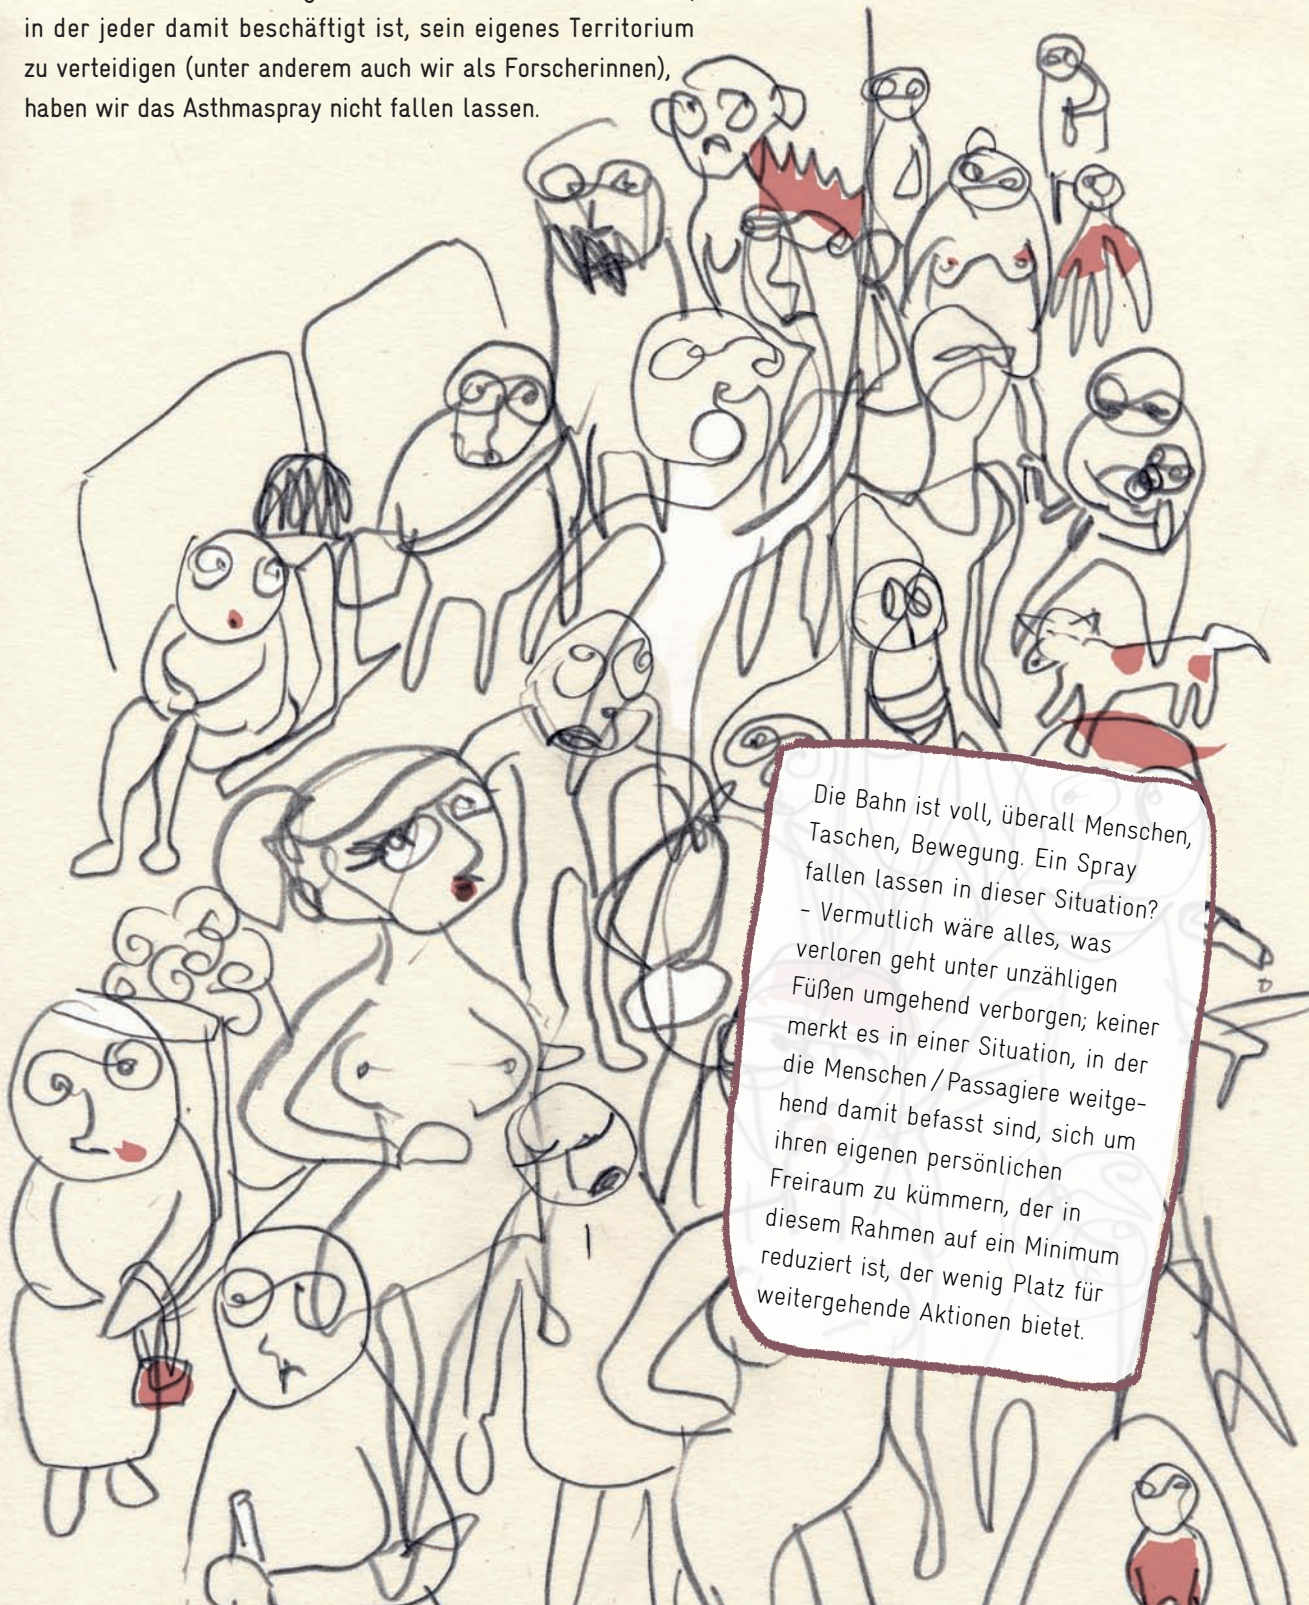 in der jeder damit beschäftigt ist, sein eigenes Territorium
zu verteidigen (unter anderem auch wir als Forscherinnen),
haben wir das Asthmaspray nicht fallen lassen.
Die Bahn ist voll, überall Menschen,
Taschen, Bewegung. Ein Spray
fallen lassen in dieser Situation?
– Vermutlich wäre alles, was
verloren geht unter unzähligen
Füßen umgehend verborgen; keiner
merkt es in einer Situation, in der
die Menschen / Passagiere weitge-
hend damit befasst sind, sich um
ihren eigenen persönlichen
Freiraum zu kümmern, der in
diesem Rahmen auf ein Minimum
reduziert ist, der wenig Platz für
weitergehende Aktionen bietet.